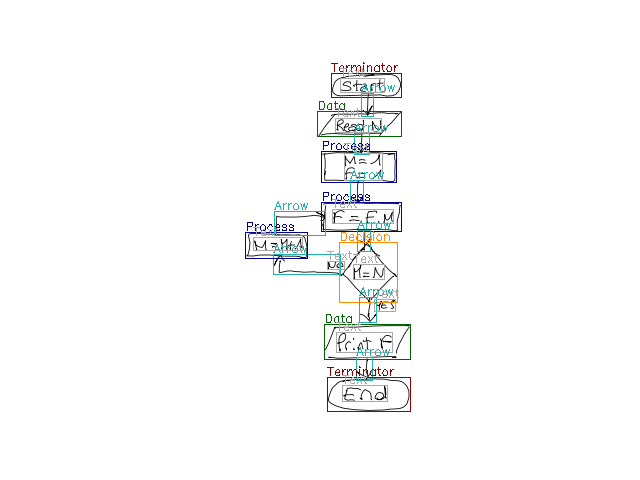 Terminator
Text
Start
Arrow
Data
Text
Read N
Arrow
Process
M = 1
F = 1
Arrow
Process
Text
F = F.M
Arrow
Arrow
Process
M = M+1
Arrow
Decision
Text
Text
No
M = N
Arrow
Text
YES
Data
Text
Print F
Arrow
Terminator
Text
End